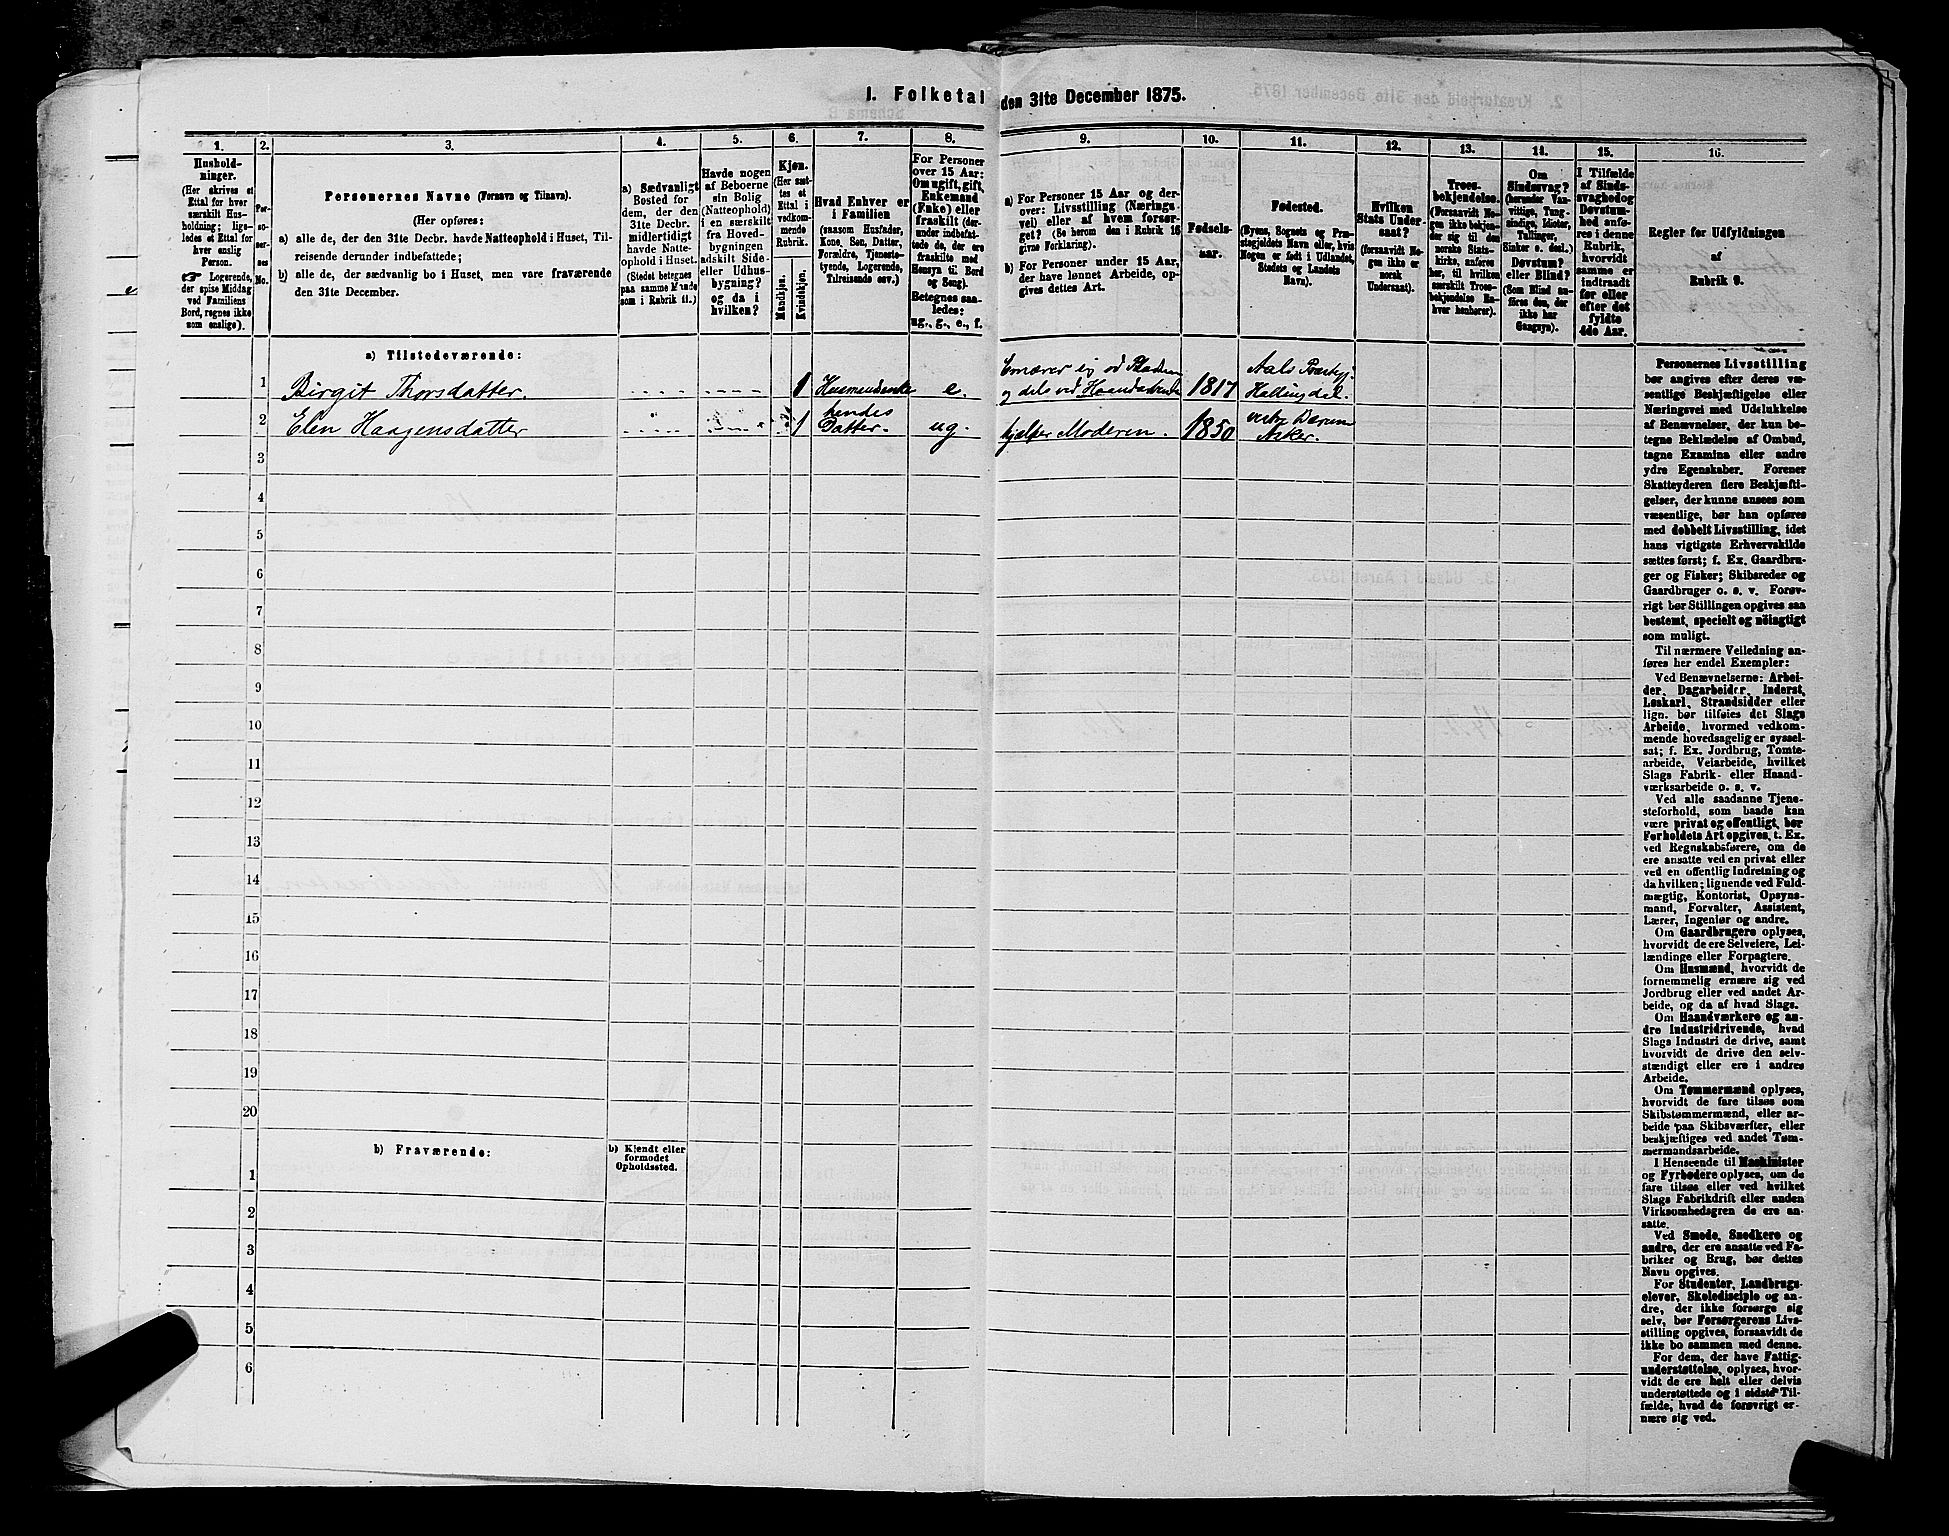 1. Folketal den 31te December 1875.
1.
Hushold-
ninger.
(Her skrives et
Ettal for hver
særskilt Hus-
holdning; lige-
ledes et Ettal for
hver enslig
Person.
☛ Logerende,
der spise Middag
ved Familiens
Bord, regnes ikke
som enslige).
2.
Per-
so-
ner-
nes
No.
3.
Personernes Navne (Fornavn og Tilnavn).
(Her opføres:
a) alle de, der den 31te Decbr. havde Natteophold i Huset, Til-
reisende derunder indbefattede;
b) alle de, der sædvanlig bo i Huset, men vare fraværende
den 31te December.
4.
a) Sædvanligt
Bosted for
dem, der den
31te Decbr.
midlertidigt
havde Natte-
ophold i Huset.
(Stedet betegnes
paa samme Maade
som i Rubrik 11.)
5.
Havde nogen
af Beboerne
sin Bolig
(Natteophold)
i en særskilt
fra Hoved-
bygningen
adskilt Side-
eller Udhus-
bygning?
og da i
hvilken?
6.
Kjøn.
(Her sæt-
tes et
Ettal i
vedkom-
mende
Rubrik.
Mandkjøn.
Kvindekjøn.
7.
Hvad Enhver er
i Familien
(saasom Husfader,
Kone, Søn, Datter,
Forældre, Tjeneste-
tyende, Logerende,
Tilreisende osv.)
8.
For Personer
over 15 Aar:
Om ugift, gift,
Enkemand
(Enke) eller
fraskilt (der-
under indbefat-
tede de, der ere
fraskilte med
Hensyn til Bord
og Seng).
Betegnes saa-
ledes:
ug., g., e., f.
9.
a) For Personer 15 Aar og der-
over: Livsstilling (Nærings-
vei) eller af hvem forsør-
get? (Se herom den i Rubrik 16
givne Forklaring).
b) For Personer under 15 Aar,
der have lønnet Arbeide, op-
gives dettes Art.
10.
Fødsels-
aar.
11.
Fødested.
(Byens, Sognets og Præ-
stegjeldets Navn eller, hvis
Nogen er født i Udlandet,
Stedets og Landets
Navn).
12.
Hvilken
Stats Under-
saat?
(forsaavidt No-
gen ikke er
norsk
Undersaat).
13.
Troes-
bekjendelse.
(Forsaavidt No-
gen ikke bekjen-
der sig til den
norske Stats-
kirke, anføres
her, til hvilken
særskilt Troes-
bekjendelse En-
hver henhører).
14.
Om
Sindssvag?
(herunder Van-
vittige, Tung-
sindige, Idioter,
Tullinger,
Sinker o. desl.)
Døvstum?
eller Blind?
(Som Blind an-
føres den, der
ikke har
Gangsyn).
15.
I Tilfælde
af Sinds-
svaghed og
Døvstum-
hed anfø-
res i denne
Rubrik,
hvorvidt
samme er
indtraadt
før eller
efter det
fyldte
4de Aar.
16.
Regler for Udfyldningen
af
Rubrik 9.
a) Tilstedeværende:
1 Birgit Thorsdatter. 1 e. 1817 Aals Hallingdal.
2 Elen Haagensdatter 1 hendes Datter. ug. hjælper Moderen. 1850 Asker.
3
4
5
6
7
8
9
10
11
12
13
14
15
16
17
18
19
20
b) Fraværende:
b) Kjendt eller
formodet
Opholdssted.
1
2
3
4
5
6
Personernes Livsstilling
bør angives efter deres væ-
sentlige Beskjæftigelse eller
Næringsvei med Udelukkelse
af Benævnelser, der kun be-
tegne Beklædelse af Ombud,
tagne Examina eller andre
ydre Egenskaber. Forener
Skatteyderen flere Beskjæfti-
gelser, der kunne ansees som
væsentlige, bør han opføres
med dobbelt Livsstilling, idet
hans vigtigste Erhvervskilde
sættes først; f. Ex. Gaardbru-
ger og Fisker; Skibsreder og
Gaardbruger o. s. v. Forøv-
rigt bør Stillingen opgives saa
bestemt, specielt og nöiagtigt
som muligt.
Til nærmere Veiledning an-
føres her endel Exempler:
Ved Benævnelserne: Arbei-
der, Dagarbeider, Inderst,
Løskarl, Strandsidder eller
lign. bør tilføies det Slags
Arbeide, hvormed vedkom-
mende hovedsagelig er syssel-
sat; f. Ex. Jordbrug, Tomte-
arbeide, Veiarbeide, hvilket
Slags Fabrik- eller Haand-
værksarbeide o. s. v.
Ved alle saadanne Tjene-
steforhold, som baade kan
være privat og offentligt, bør
Forholdets Art opgives, t. Ex.
ved Regnskabsførere, om de
ere ansatte ved en privat eller
ved en offentlig Indretning og
da hvilken; lignende ved Fuld-
mægtig, Kontorist, Opsyns-
mand, Forvalter, Assistent,
Lærer, Ingeniør og andre.
Om Gaardbrugere oplyses,
hvorvidt de ere Selveiere, Lei-
lændinge eller Forpagtere.
Om Husmænd, hvorvidt de
fornemmelig ernære sig ved
Jordbrug eller ved andet Ar-
beide, og da af hvad Slags.
Om Haandværkere og an-
dre Industridrivende, hvad
Slags Industri de drive, samt
hvorvidt de drive den selv-
stændigt eller ere i andres
Arbeide.
Om Tømmermænd oplyses,
hvorvidt de fare tilsøs som
Skibstømmermænd, eller ar-
beide paa Skibsværfter, eller
beskjæftiges ved andet Tøm-
mermandsarbeide.
I Henseende til Maskinister
og Fyrbødere oplyses, om de
fare tilsøs eller ved hvilket
Slags Fabrikdrift eller anden
Virksomhedsgren de ere an-
satte.
Ved Smede, Snedkere og
andre, der ere ansatte ved Fa-
briker og Brug, bør dettes
Navn opgives.
For Studenter, Landbrugs-
elever, Skoledisciple og an-
dre, der ikke forsørge sig
selv, bør Forsørgerens Livs-
stilling opgives, forsaavidt de
ikke bo sammen med denne.
For dem, der have Fattig-
understøttelse, oplyses, hvor-
vidt de ere helt eller delvis
understøttede og i sidste Til-
fælde, hvad de forøvrigt er-
nære sig ved.